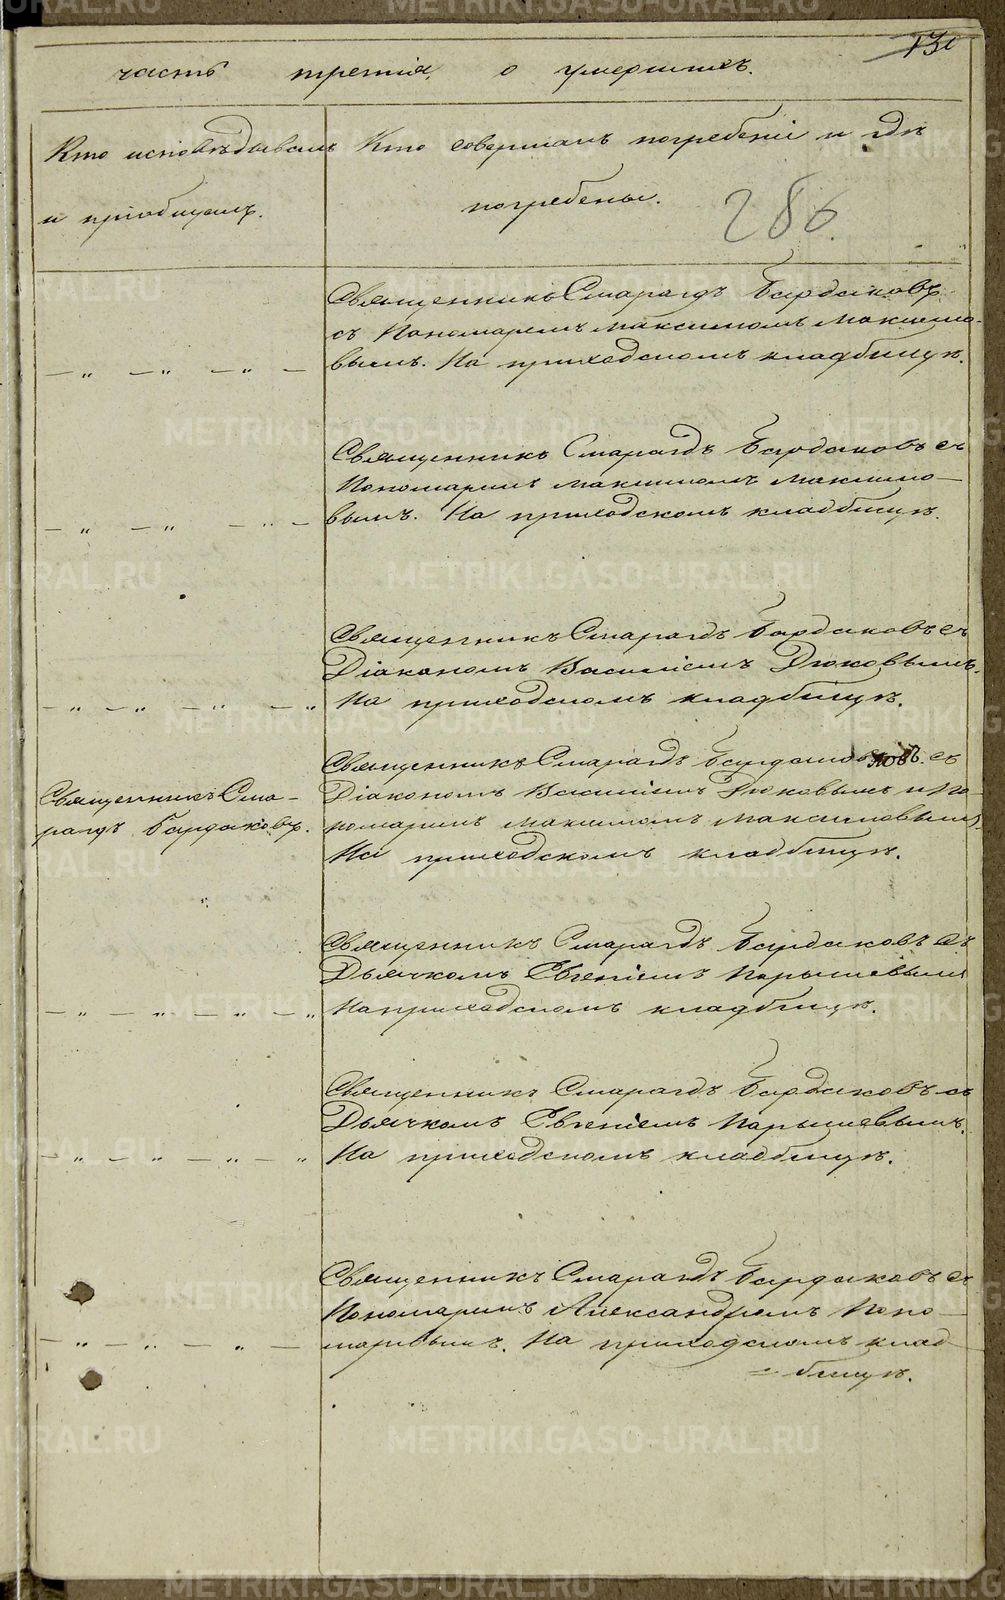 130
часть третія, о умершихъ.
Кто исповѣдывалъ
и пріобщалъ.
Кто совершалъ погребеніе и гдѣ
погребены.
286.
Священникъ Смарагдъ Бардаковъ
съ Пономаремъ Максимомъ Максимо-
вымъ. На приходскомъ кладбищѣ.
— „ — „ — „ —
Священникъ Смарагдъ Бардаковъ съ
Пономаремъ Максимомъ Максимо—
вымъ. На приходскомъ кладбищѣ.
— „ — „ — „ —
Священникъ Смарагдъ Бардаковъ съ
Діакономъ Василіемъ Дюковымъ.
На приходскомъ кладбищѣ.
— „ — „ — „ — „
Священникъ Сма—
рагдъ Бардаковъ.
Священникъ Смарагдъ Бардаковъ. съ
Діакономъ Василіемъ Дюковымъ и По-
номаремъ Максимомъ Максимовымъ.
На приходскомъ кладбищѣ.
Священникъ Смарагдъ Бардаковъ съ
Дьячкомъ Евгеніемъ Парышевымъ
На приходскомъ кладбищѣ.
— „ — „ — „ — „
Священникъ Смарагдъ Бардаковъ съ
Дьячкомъ Евгеніемъ Парышевымъ.
На приходскомъ кладбищѣ.
— „ — „ — „ — „
Священникъ Смарагдъ Бардаковъ съ
Пономаремъ Александромъ Поно—
маревымъ. На приходскомъ клад
= бищѣ.
— „ — „ — „ —
METRIKI.GASO-URAL.RU